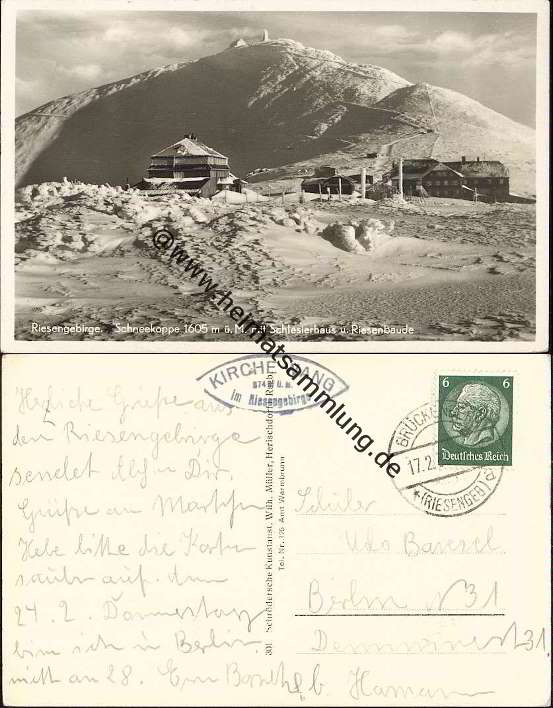 Riesengebirge. Schneekoppe 1605 m ü. M. mit Schlesierhaus u. Riesenbaude
@www.heimatsammlung.de
KIRCHE WANG
874 m ü. M.
im Riesengebirge
6 6
Deutsches Reich
BRÜCKENB
17.2.
(RIESENGEB) a
301 Schrödersche Kunstanst. Wilh. Müller, Herischdorf i. Rsgb.
Tel. Nr. 126 Amt Warmbrunn
Herzliche Grüße aus
dem Riesengebirge
sendet Dir.
Grüße an
Hebe bitte die Karte
sauber auf. dem
24.2. Donnerstag
bin ich in Berlin
nicht am 28.
b. Hamann
Schüler
Udo
Berlin N 31
31